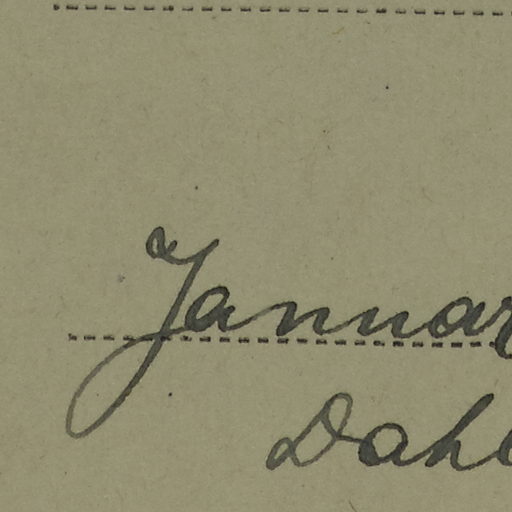 Januar
Dahl